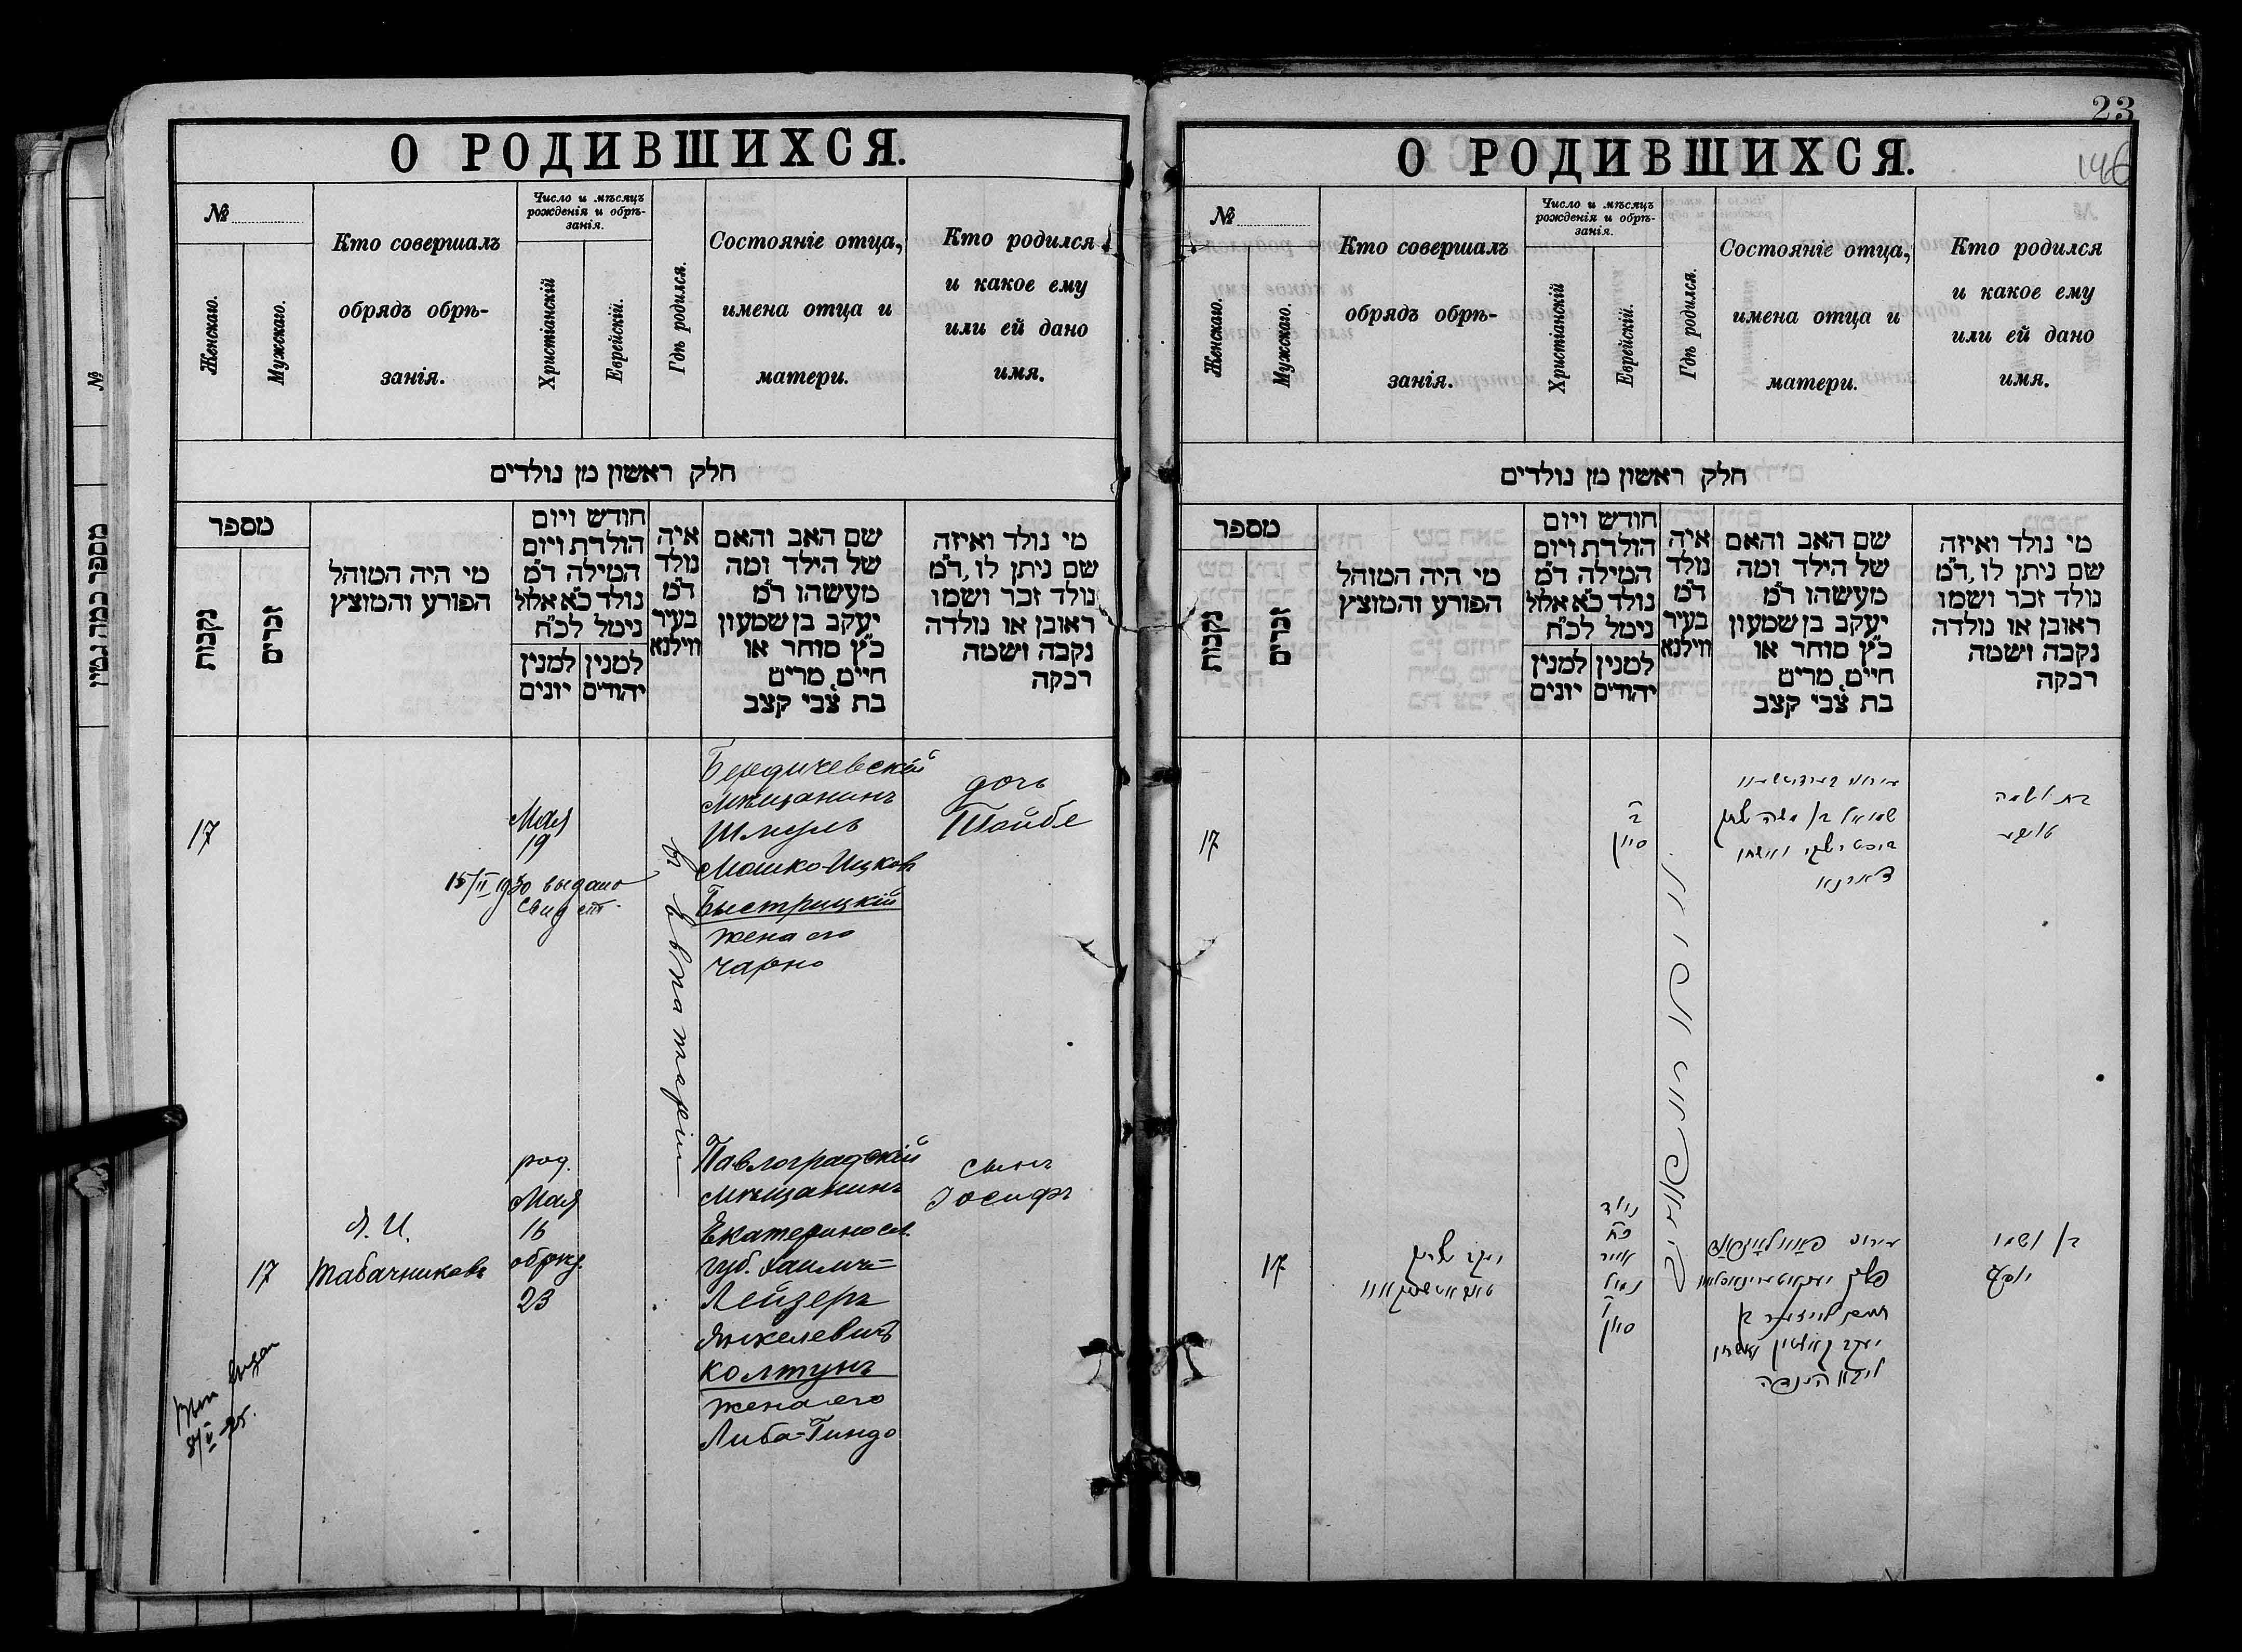 О РОДИВШИХСЯ.
№
Женскаго.
Мужскаго.
Кто совершалъ
обрядъ обрѣ-
занія.
Число и мѣсяцъ
рожденія и обрѣ-
занія.
Христіанскій
Еврейскій.
Гдѣ родился.
Состояніе отца,
имена отца и
матери.
Кто родился
и какое ему
или ей дано
имя.
חלק ראשון מן נולדים
מספר
נקבות
זכרים
מי היה המוהל
הפורע והמוצץ
חודש ויום
הולדת ויום
המילה ד״מ
נולד כ״א אלול
נימל לכ״ח
למנין
יונים
למנין
יהודים
איה
נולד
ד״מ
בעיר
ווילנא
שם האב והאם
של הילד ומה
מעשהו ד״מ
יעקב בן שמעון
כ״ץ סוחר או
חיים, מרים
בת צבי קצב
מי נולד ואיזה
שם ניתן לו, ד״מ
נולד זכר ושמו
ראובן או נולדה
נקבה ושמה
רבקה
17
Мая
19
15/II 1930 выдано
свид
въ Евпаторіи
Бердичевскій
мѣщанинъ
Шмуль
Мошко-Ицков
Быстрицкій
жена его
Чарно
дочь
Тойбе
17
Я. И.
Табачниковъ
род.
Мая
16
обрѣз.
23
Павлоградскій
мѣщанинъ
Екатериносл.
губ. Хаимъ=
Лейзеръ
Янкелевичъ
Колтунъ
жена его
Либа=Гиндо
сынъ
Іосифъ
23
146
О РОДИВШИХСЯ.
№
Женскаго.
Мужскаго.
Кто совершалъ
обрядъ обрѣ-
занія.
Число и мѣсяцъ
рожденія и обрѣ-
занія.
Христіанскій
Еврейскій.
Гдѣ родился.
Состояніе отца,
имена отца и
матери.
Кто родился
и какое ему
или ей дано
имя.
חלק ראשון מן נולדים
מספר
נקבות
זכרים
מי היה המוהל
הפורע והמוצץ
חודש ויום
הולדת ויום
המילה ד״מ
נולד כ״א אלול
נימל לכ״ח
למנין
יונים
למנין
יהודים
איה
נולד
ד״מ
בעיר
ווילנא
שם האב והאם
של הילד ומה
מעשהו ד״מ
יעקב בן שמעון
כ״ץ סוחר או
חיים, מרים
בת צבי קצב
מי נולד ואיזה
שם ניתן לו, ד״מ
נולד זכר ושמו
ראובן או נולדה
נקבה ושמה
רבקה
17
ב׳
סיון
שמואל בן משה יצחק
ואשתו
בת ושמה
17
יעקב יצחק
נולד
כ״ח
אייר
נמול
ו׳
סיון
חיים לייזער בן
יעקב קאלטון ואשתו
ליבא הינדה
בן ושמו
יוסף